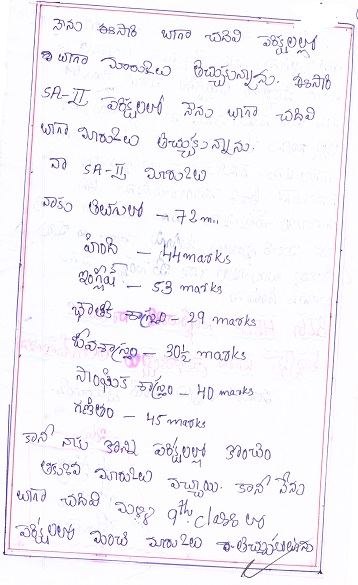 నేను ఈసారి బాగా చదివి పరీక్షలల్లో
బాగా మారుకులు తెచ్చుకున్నాను. ఈసారి
SA-II పరీక్షలలో నేను బాగా చదివి
బాగా మారుకులు తెచ్చుకున్నాను.
నా SA-II మారుకులు
నాకు తెలుగులో - 72 m..
హింది - 44 marks
ఇంగ్లీష్ - 53 marks
భౌతిక శాస్త్రం - 29 marks
జీవశాస్త్రం - 30½ marks
సాంఘిక శాస్త్రం - 40 marks
గణితం - 45 marks
కాని నాకు కొన్ని పరీక్షలల్లో కొంచెం
తక్కువ మారుకులు వచ్చాయి. కాని నేను
బాగా చదివి మళ్ళీ 9th class లో
పరీక్షలలో మంచి మారుకులు తెచ్చుకుంటాను